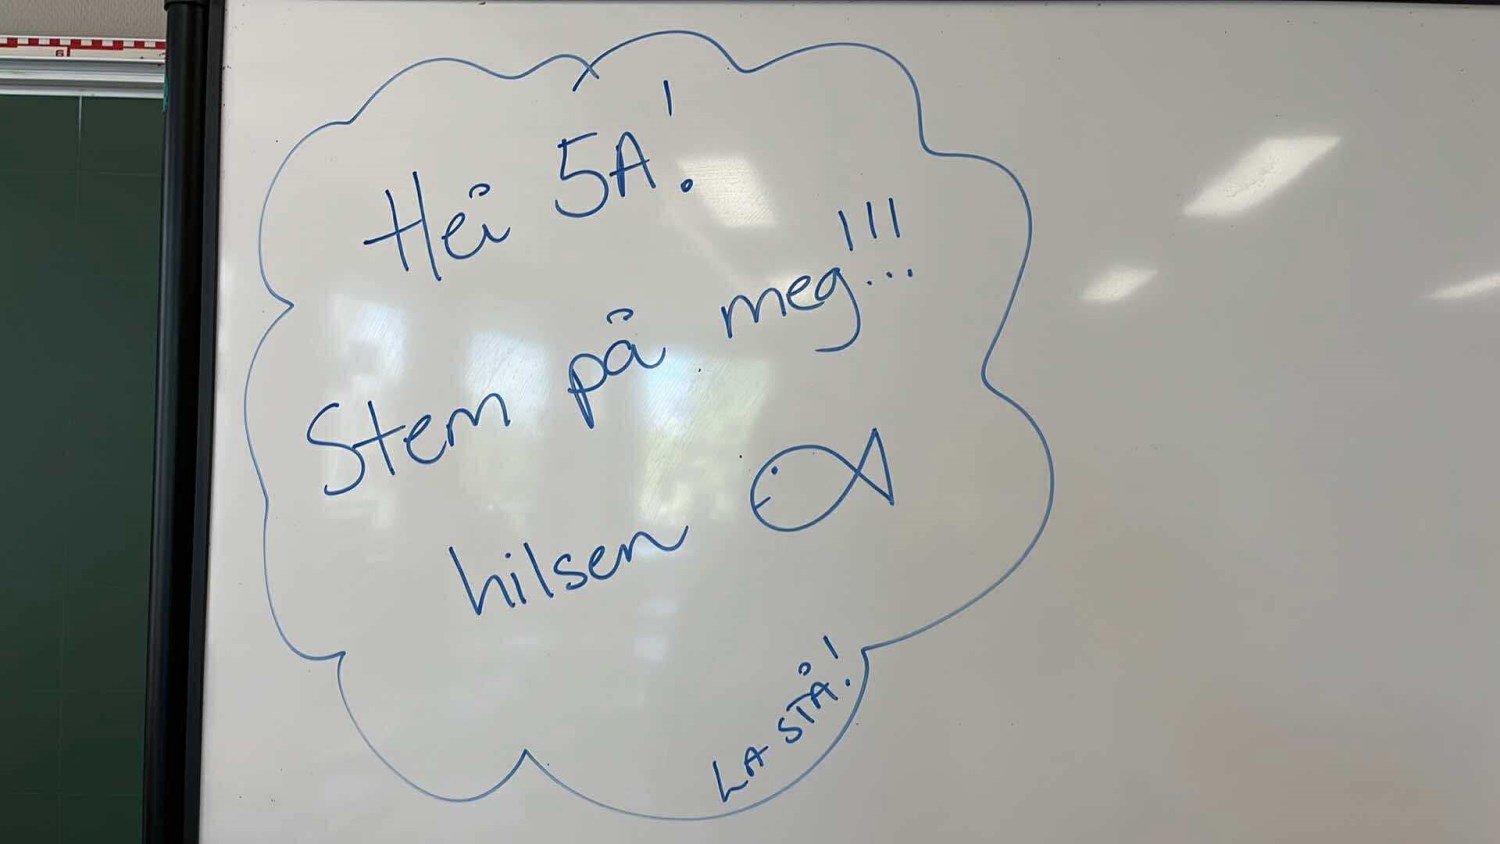 Hei 5A!
Stem på meg!!!
hilsen
LA STÅ!